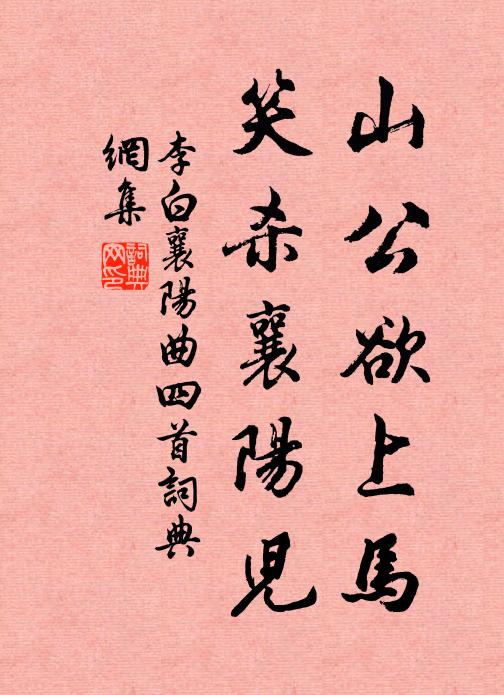 山公欲上馬
笑杀襄陽兒
李白襄陽曲四首詞典
網集
詞典
网印